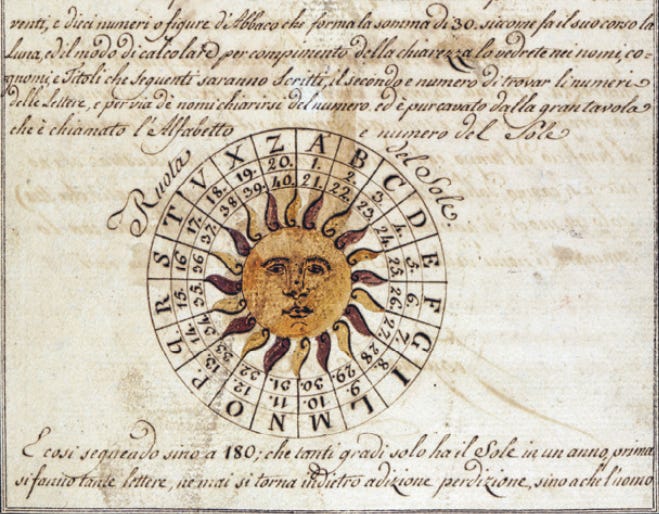 venti, e dieci numeri o figure di Abbaco che forma la somma di 30. siccome fa il suo corso la
Luna, ed il modo di calcolare per compimento della chiarezza la vedrete nei nomi, co-
gnomi, e Titoli che seguenti saranno Scritti, il secondo e numero di trovar li numeri
delle Lettere, e per via de nomi chiarirsi del numero. ed è pur cavato dalla gran tavola
che è chiamato l'Alfabetto e numero del Sole
Ruola del Sole.
A B C D E F G I L M N O P q R S T V X Z
1. 2. 3. 4. 5. 6. 7. 8. 9. 10. 11. 12. 13. 14. 15. 16 17. 18. 19. 20.
21. 22. 23. 24. 25. 26. 27. 28. 29. 30. 31. 32. 33. 34. 35. 36 37. 38. 39. 40.
E cosi sequendo sino a 180; che tanti gradi solo ha il Sole in un anno, prima
si fanno tante lettere, ne mai si torna indietro adizione perdizione, sino a che l'nomo